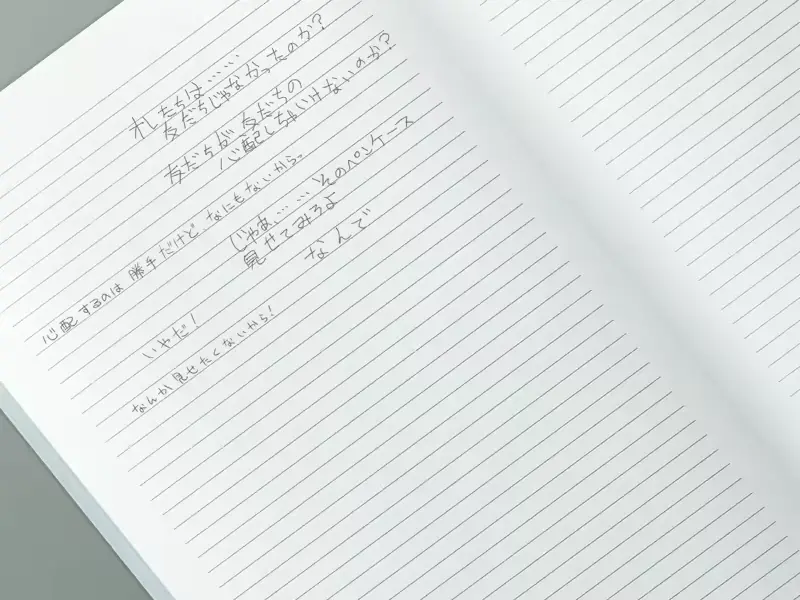 オレたちは……
友だちじゃなかったのか?
友だちが、友だちの
心配しちゃいけないのか?
心配するのは勝手だけど、なにもないから。
じゃあ、……そのペンケース
見せてみろよ
なんで
いやだ!
なんか見せたくないから!